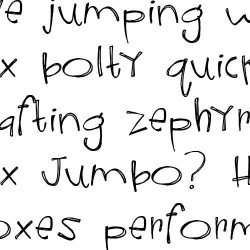 e jumping w
x bolty quick
afting zephyr
x Jumbo? H
oxes perform